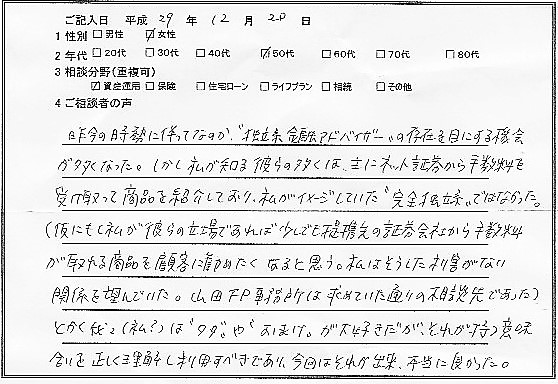 ご記入日 平成 29 年 12 月 20 日
1 性別 □男性 ☑女性
2 年代 □20代 □30代 □40代 ☑50代 □60代 □70代 □80代
3 相談分野(重複可)
☑資産運用 □保険 □住宅ローン □ライフプラン □相続 □その他
4 ご相談者の声
昨今の時勢に伴ってなのか、"独立系金融アドバイザー"の存在を目にする機会
が多くなった。しかし私が知る彼らの多くは、主にネット証券から手数料を
受け取って商品を紹介しており、私がイメージしていた"完全独立系"ではなかった。
(仮にもし私が彼らの立場であれば少しでも提携先の証券会社から手数料
が取れる商品を顧客に勧めたくなると思う。私はそうした利害がない
関係を望んでいた。山田FP事務所は求めていた通りの相談先であった)
とかく (私?)は"タダ"や"おまけ"が大好きだが、それが持つ意味
合いを正しく理解し利用すべきであり、今回はそれが出来、本当に良かった。